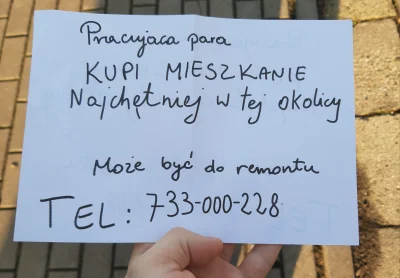 Pracująca para
KUPI MIESZKANIE
Najchętniej w tej okolicy
Może być do remontu
TEL: 733-000-228